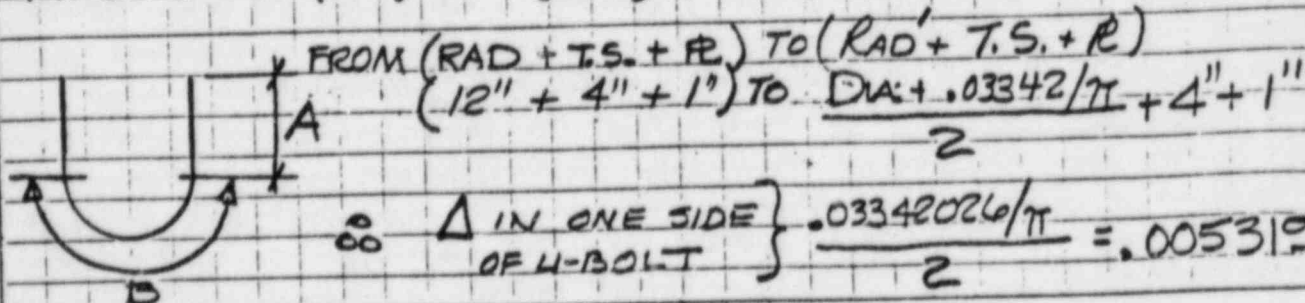 FROM (RAD + T.S. + PL) TO (RAD' + T.S. + PL)
(12" + 4" + 1") TO (DIA: + .03342/π)/2 + 4" + 1"
A
∴ Δ IN ONE SIDE OF U-BOLT } (.03342026/π)/2 = .005319
B